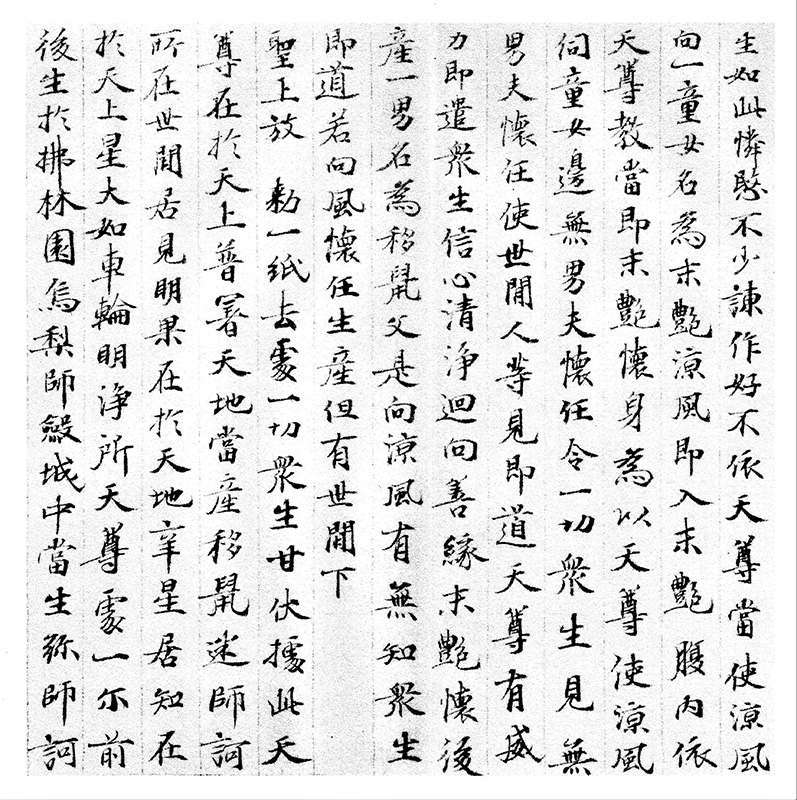 生如此憐愍不少諫作好不依天尊當使涼風
向一童女名為末艷涼風即入末艷腹內依
天尊教當即末艷懷身為以天尊使涼風
伺童女邊無男夫懷任令一切衆生見無
男夫懷任使世間人等見即道天尊有威
力即遣衆生信心清淨迴向善緣末艷懷後
產一男名為移鼠父是向涼風有無知衆生
即道若向風懷任生產但有世間下
聖上放 勅一紙去處一切衆生甘伏據此天
尊在於天上普署天地當產移鼠迷師訶
所在世間居見明果在於天地辛星居知在
於天上星大如車輪明淨所天尊處一尒前
後生於拂林園烏梨師斂城中當生弥師訶